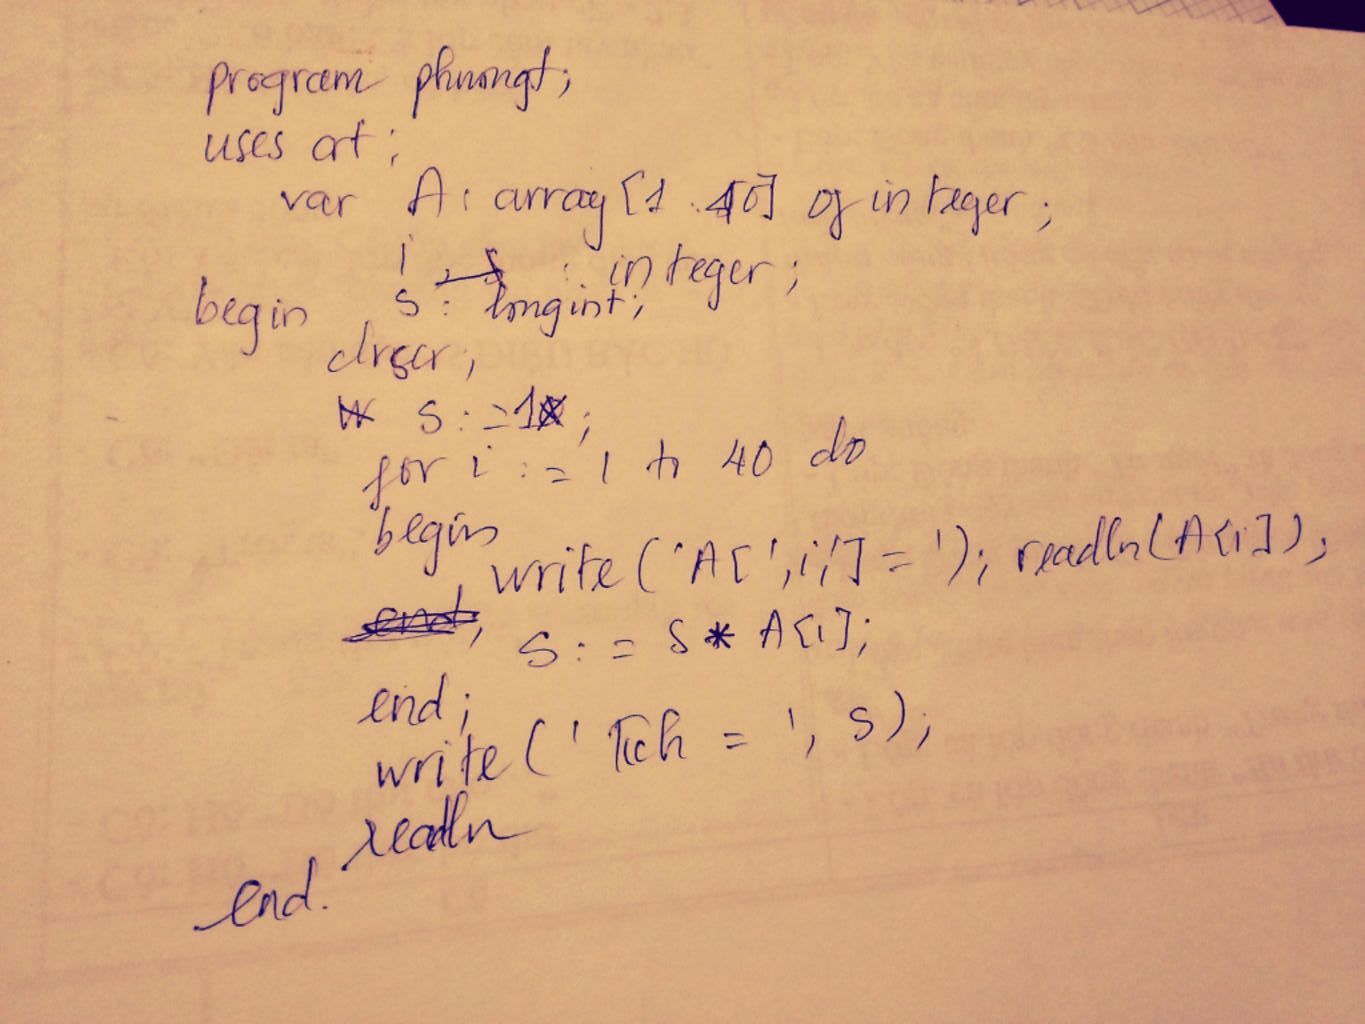 program phuongt;
uses crt;
var A: array[1..40] of integer;
i : integer;
begin s: longint;
clrscr;
s:=1;
for i:=1 to 40 do
begin
write('A[',i,']='); readln(A[i]);
s:= s* A[i];
end;
write('Tich = ', s);
readln
end.